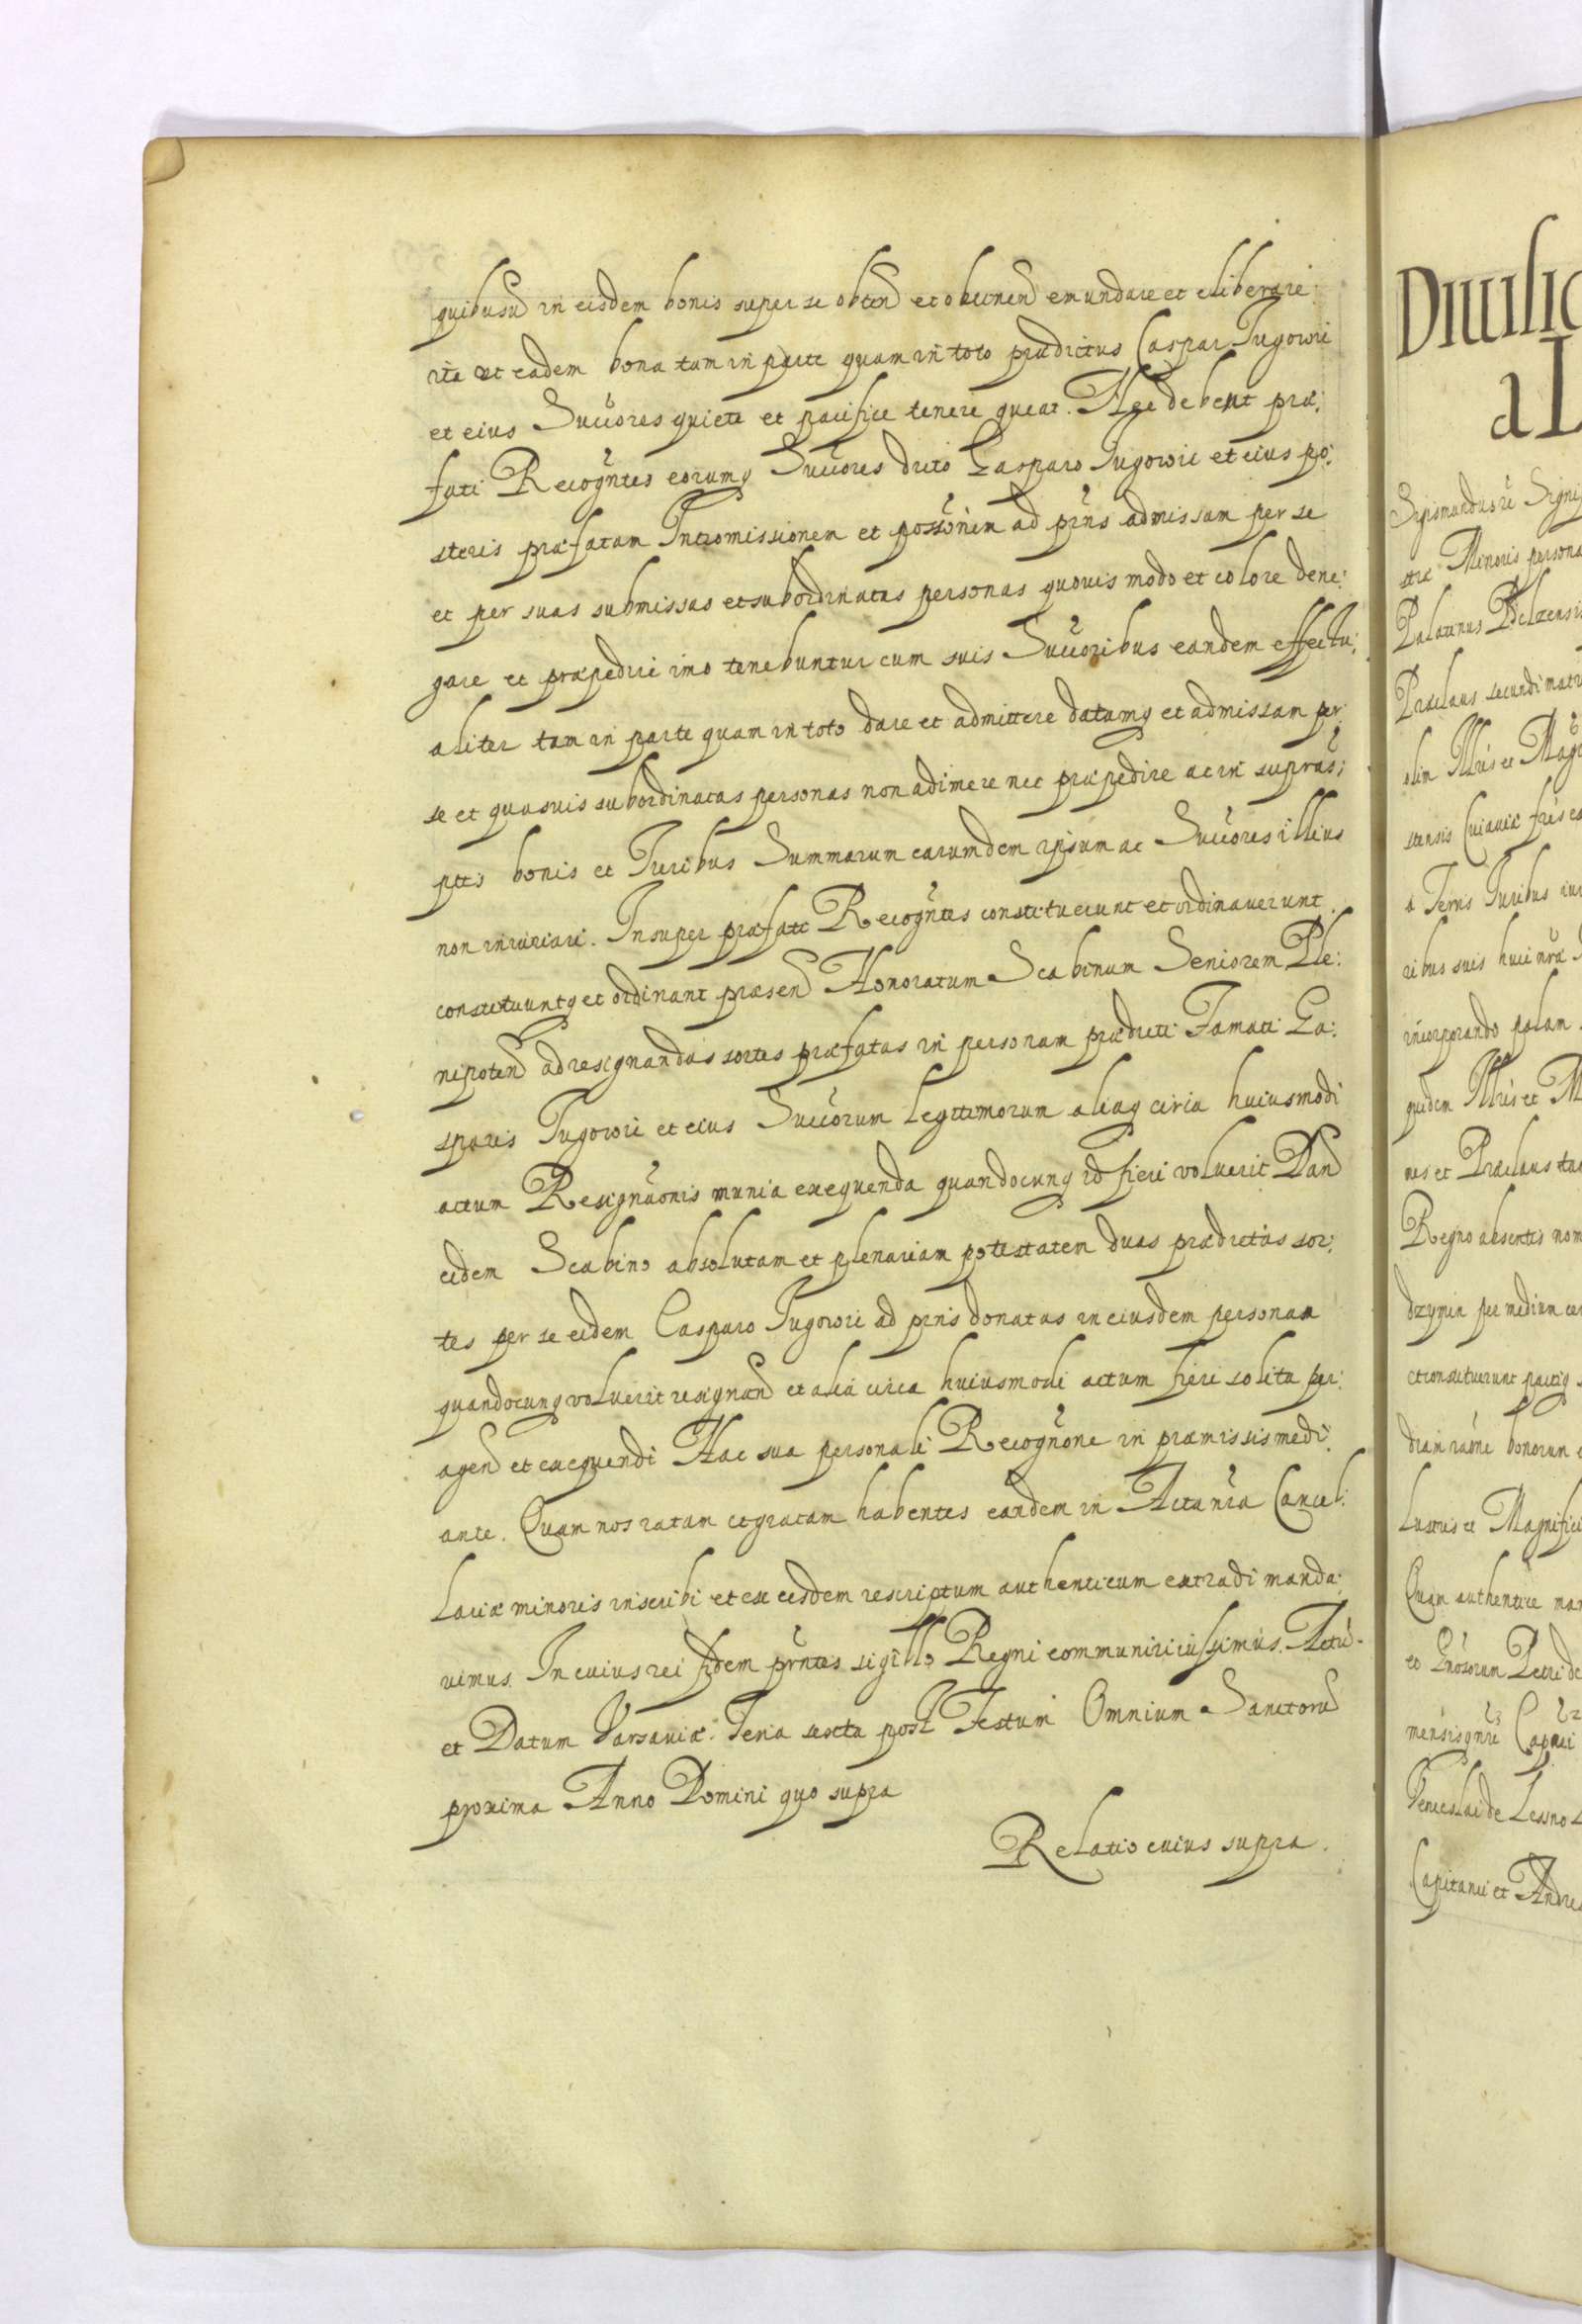 quibusũ in eisdem bonis super se obten̄ et obtinen̄ emundare et eliberare
ita ut eadem bona tam in parte quam in toto prædictus Caspar Jugowic
et eius Succores quiete et pacifice tenere queat. Nec debent præ:
fati Recogntes eorumq Succores dicto Casparo Jugowic et eius po:
steris præfatam Intromissionem et possonem ad prns admissam per se
et per suas submissas et subordinatas personas quovis modo et colore dene:
gare et præpedire imo tenebuntur cum suis Succoribus eandem effectu:
aliter tam in parte quam in toto dare et admittere datamq et admissam per
se et quasvis subordinatas personas non adimere nec præpedire ac in supras:
ptis bonis et Juribus Summarum earumdem ipsum ac Succores illius
non iniuriari. Insuper præfati Recogntes constituerunt et ordinaverunt
constituuntq et ordinant præsen̄ Honoratum Scabinum Seniorem Ple:
nipoten̄ ad resignandas sortes præfatas in personam prædicti Famati Ca:
sparis Jugowic et eius Succorum legitimorum aliaq circa huiusmodi
actum Resignaonis munia exequenda quandocunq id fieri voluerit Dan̄
eidem Scabino absolutam et plenariam potestatem duas prædictas sor:
tes per se eidem Casparo Jugowic ad prns donatas in eiusdem personam
quandocunq voluerit resignan̄ et alia circa huiusmodi actum fieri solita per:
agen̄ et exequendi Hac sua personali Recognone in præmissis medi:
ante. Quam nos ratam et gratam habentes eandem in Acta nra Cancel:
lariæ minoris inscribi et ex eisdem rescriptum authenticum extradi manda:
vimus. In cuius rei fidem prntes sigillo Regni communiri iussimus. Actū
et Datum Varsaviæ. Feria sexta post Festum Omnium Sanctorū
proxima Anno Domini quo supra
Relatio cuius supra.
Sigismundus
stræ Minoris persona
Palatinus Belzensis
olim Illris et
stensis Cuiaviæ fris
ribus suis huic nræ
incorporando palam
quidem Illris et
nes et
Regno absentis nom
per medium
et constituerunt
bonorum
lustris et Magnifici
Quam authentice
de Lesno
Capitanei et